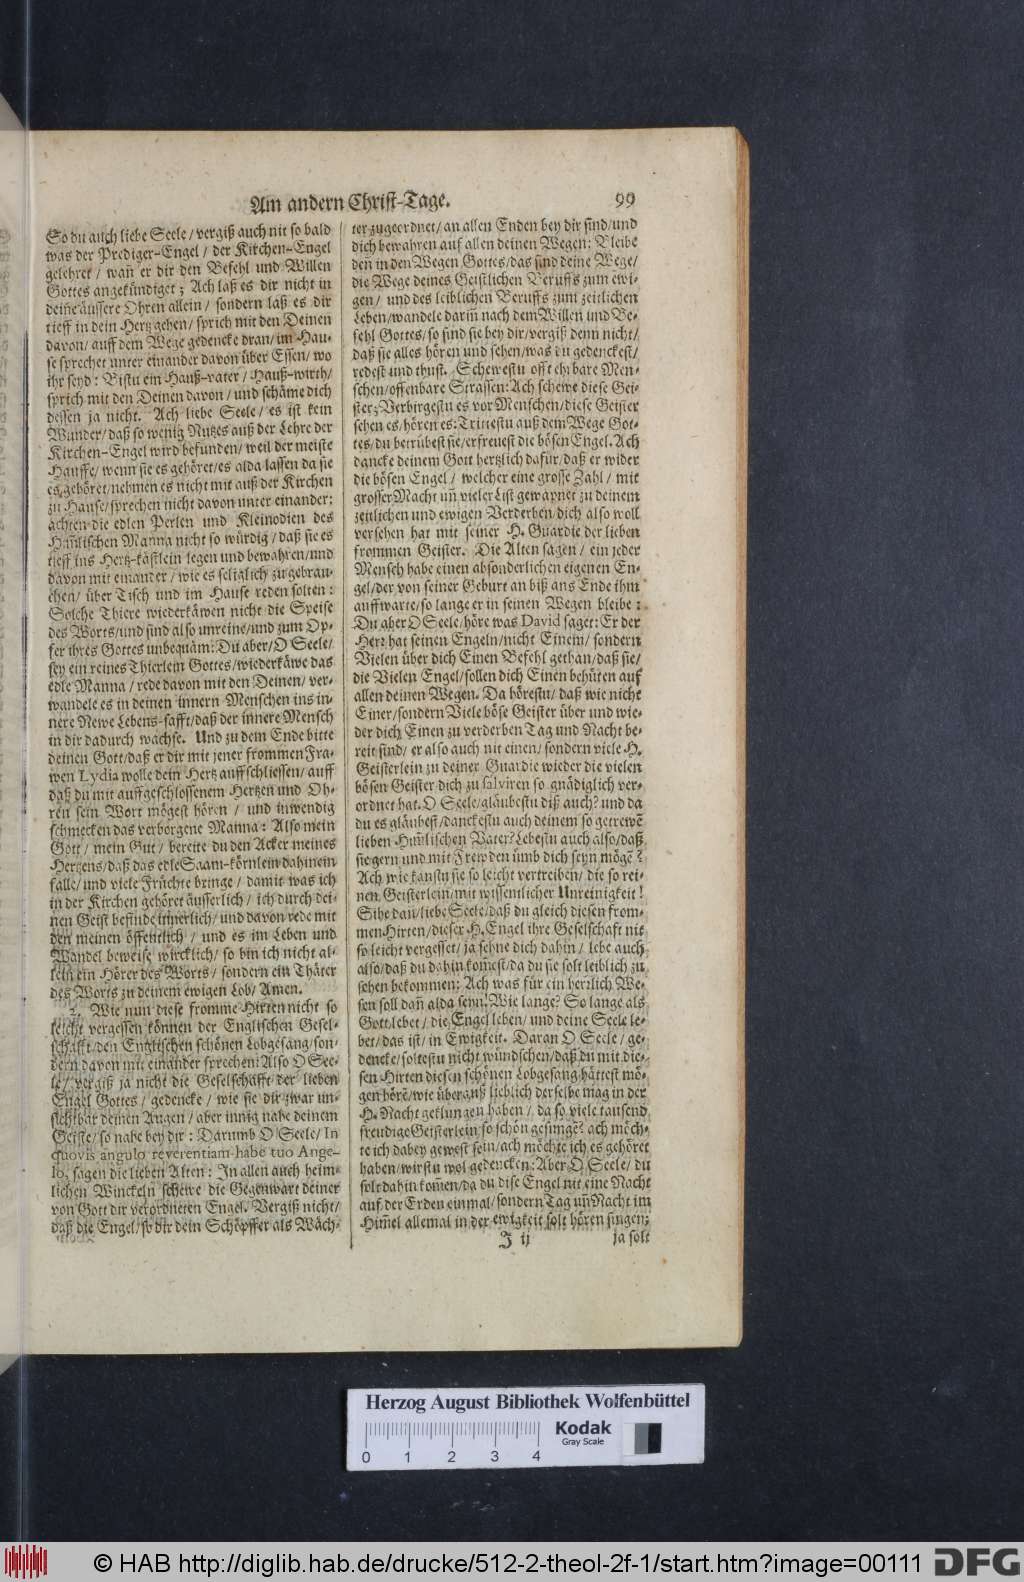 Am andern Christ-Tage.
99
So du auch liebe Seele / vergiß auch nit so bald
was der Prediger-Engel / der Kirchen-Engel
gelehret / wañ er dir den Befehl und Willen
Gottes angekündiget ; Ach laß es dir nicht in
deine äussere Ohren allein / sondern laß es dir
tieff in dein Hertz gehen / sprich mit den Deinen
davon / auff dem Wege gedencke dran / im Hau-
se sprechet unter einander davon über Essen / wo
ihr seyd : Bistu ein Hauß-vater / Hauß-wirth /
sprich mit den Deinen davon / und schäme dich
dessen ja nicht. Ach liebe Seele / es ist kein
Wunder / daß so wenig Nutzes auß der Lehre der
Kirchen-Engel wird befunden / weil der meiste
Hauffe / wenn sie es gehöret / es alda lassen da sie
es gehöret / nehmen es nicht mit auß der Kirchen
zu Hause / sprechen nicht davon unter einander :
achten die edlen Perlen und Kleinodien des
Him̃lischen Manna nicht so würdig / daß sie es
tieff ins Hertz-kästlein legen und bewahren / und
davon mit einander / wie es seliglich zu gebrau-
chen / über Tisch und im Hause reden solten :
Solche Thiere wiederkäwen nicht die Speise
des Worts / und sind also unreine / und zum Op-
fer ihres Gottes unbequäm : Du aber / O Seele /
sey ein reines Thierlein Gottes / wiederkäwe das
edle Manna / rede davon mit den Deinen / ver-
wandele es in deinen innern Menschen ins in-
nere Newe Lebens-safft / daß der innere Mensch
in dir dadurch wachse. Und zu dem Ende bitte
deinen Gott / daß er dir mit jener frommen Fra-
wen Lydia wolle dein Hertz auffschliessen / auff
daß du mit auffgeschlossenem Hertzen und Oh-
ren sein Wort mögest hören / und inwendig
schmecken das verborgene Manna : Also mein
Gott / mein Gut / bereite du den Acker meines
Hertzens / daß das edle Saam-körnlein dahinein
falle / und viele Früchte bringe / damit was ich
in der Kirchen gehöret äusserlich / ich durch dei-
nen Geist befinde innerlich / und davon rede mit
den meinen öffentlich / und es im Leben und
Wandel beweise wircklich / so bin ich nicht al-
lein ein Hörer des Worts / sondern ein Thäter
des Worts zu deinem ewigen Lob / Amen.
2. Wie nun diese fromme Hirten nicht so
leicht vergessen können der Englischen Gesel-
schafft / den Englischen schönen Lobgesang / son-
dern davon mit einander sprechen : Also O See-
le / vergiß ja nicht die Geselschafft der lieben
Engel Gottes / gedencke / wie sie dir zwar un-
sichtbar deinen Augen / aber innig nahe deinem
Geiste / so nahe bey dir : Darumb O Seele / In
quovis angulo reverentiam habe tuo Ange-
lo, sagen die lieben Alten : In allen auch heim-
lichen Winckeln schewe die Gegenwart deiner
von Gott dir verordneten Engel. Vergiß nicht /
daß die Engel / so dir dein Schöpffer als Wäch-
ter zugeordnet / an allen Enden bey dir sind / und
dich bewahren auf allen deinen Wegen : Bleibe
deñ in den Wegen Gottes / das sind deine Wege /
die Wege deines Geistlichen Beruffs zum ewi-
gen / und des leiblichen Beruffs zum zeitlichen
Leben / wandele dariñ nach dem Willen und Be-
fehl Gottes / so sind sie bey dir / vergiß denn nicht /
daß sie alles hören und sehen / was du gedenckest /
redest und thust. Schewestu offt ehrbare Men-
schen / offenbare Strassen : Ach schewe diese Gei-
ster ; Verbirgestu es vor Menschen / diese Geister
sehen es / hören es : Trittestu auß dem Wege Got-
tes / du betrübest sie / erfreuest die bösen Engel. Ach
dancke deinem Gott hertzlich dafür / daß er wider
die bösen Engel / welcher eine grosse Zahl / mit
grosser Macht uñ vieler List gewapnet zu deinem
zeitlichen und ewigen Verderben / dich also woll
versehen hat mit seiner H. Guardie der lieben
frommen Geister. Die Alten sagen / ein jeder
Mensch habe einen absonderlichen eigenen En-
gel / der von seiner Geburt an biß ans Ende ihm
auffwarte / so lange er in seinen Wegen bleibe :
Du aber O Seele / höre was David saget : Er der
Herr hat seinen Engeln / nicht Einem / sondern
Vielen über dich Einen Befehl gethan / daß sie /
die Vielen Engel / sollen dich Einen behüten auf
allen deinen Wegen. Da hörestu / daß wie nicht
Einer / sondern Viele böse Geister über und wie-
der dich Einen zu verderben Tag und Nacht be-
reit sind / er also auch nit einen / sondern viele H.
Geisterlein zu deiner Guardie wieder die vielen
bösen Geister dich zu salviren so gnädiglich ver-
ordnet hat. O Seele / gläubestu diß auch ? und da
du es gläubest / danckestu auch deinem so getrewẽ
lieben Him̃lischen Vater ? Lebestu auch also / daß
sie gern und mit Frewden ümb dich seyn mögẽ ?
Ach wie kanstu sie so leicht vertreiben / die so rei-
nen Geisterlein / mit wissentlicher Unreinigkeit !
Sihe dañ / liebe Seele / daß du gleich diesen from-
men Hirten / dieser H. Engel ihre Geselschaft nit
so leicht vergesset / ja sehne dich dahin / lebe auch
also / daß du dahin kom̃est / da du sie solt leiblich zu
sehen bekommen : Ach was für ein herrlich We-
sen soll dañ alda seyn ! Wie lange ? So lange als
Gott lebet / die Engel leben / und deine Seele le-
bet / das ist / in Ewigkeit. Daran O Seele / ge-
dencke / soltestu nicht wündschen / daß du mit die-
sen Hirten diesen schönen Lobgesang hättest mö-
gen hörẽ / wie überauß lieblich derselbe mag in der
H. Nacht geklungen haben / da so viele tausend
freudige Geisterlein so schön gesungẽ ? ach möch-
te ich dabey gewest sein / ach möchte ich es gehöret
haben / wirstu wol gedencken : Aber O Seele / du
solt dahin kom̃en / da du dise Engel nit eine Nacht
auf der Erden einmal / sondern Tag uñ Nacht im
Him̃el allemal in der ewigkeit solt hören singen ;
J ij
ja solt
Herzog August Bibliothek Wolfenbüttel
Kodak
Gray Scale
0 1 2 3 4
© HAB http://diglib.hab.de/drucke/512-2-theol-2f-1/start.htm?image=00111
DFG